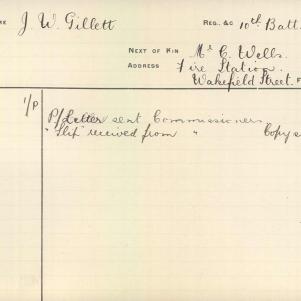 ME J. W. Gillett REG. &C 10th Batt.
NEXT OF KIN Mr C. Wells.
ADDRESS Fire Station
Wakefield Street. F
1/P
P/Letter sent Commissioners
"Slip" received from " Copy s